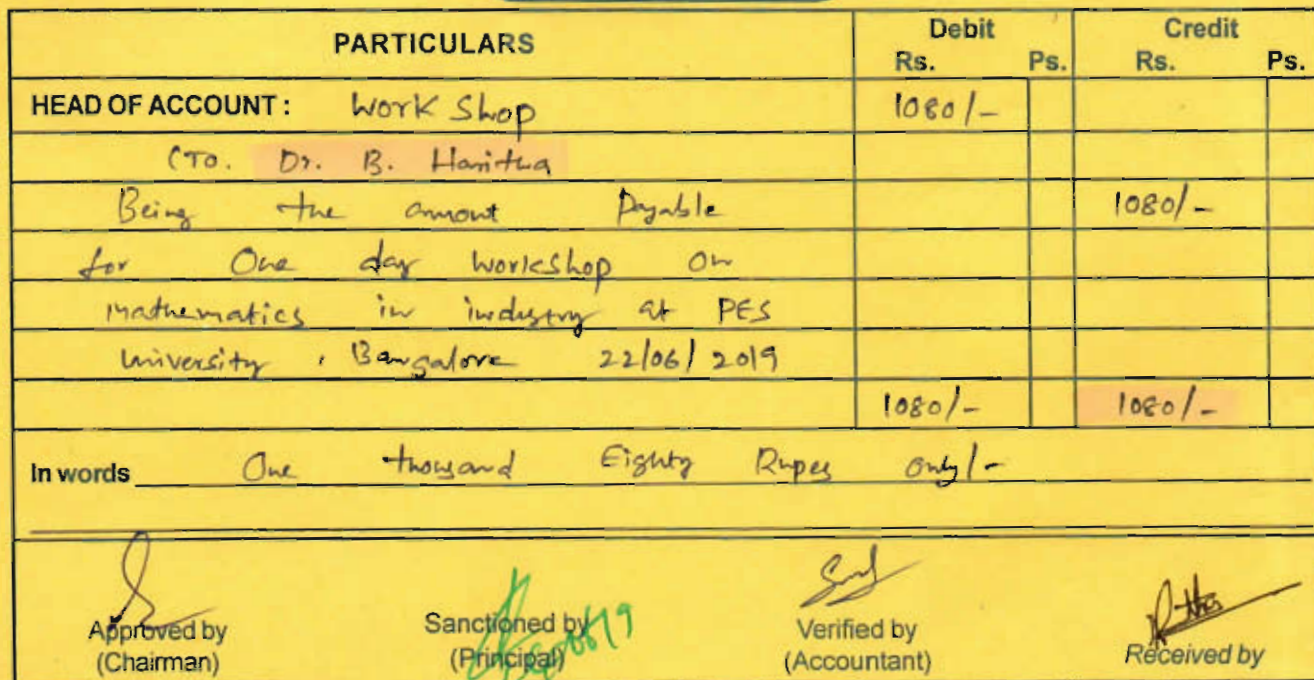 PARTICULARS Debit Credit
Rs. Ps. Rs. Ps.
HEAD OF ACCOUNT : Work Shop 1080/-
(To. Dr. B. Haritha
Being the amount Payable 1080/-
for One day workshop on
mathematics in industry at PES
university , Bangalore 22/06/2019
1080/- 1080/-
In words One thousand Eighty Rupes only/-
Approved by Sanctioned by Verified by Received by
(Chairman) (Principal) (Accountant)